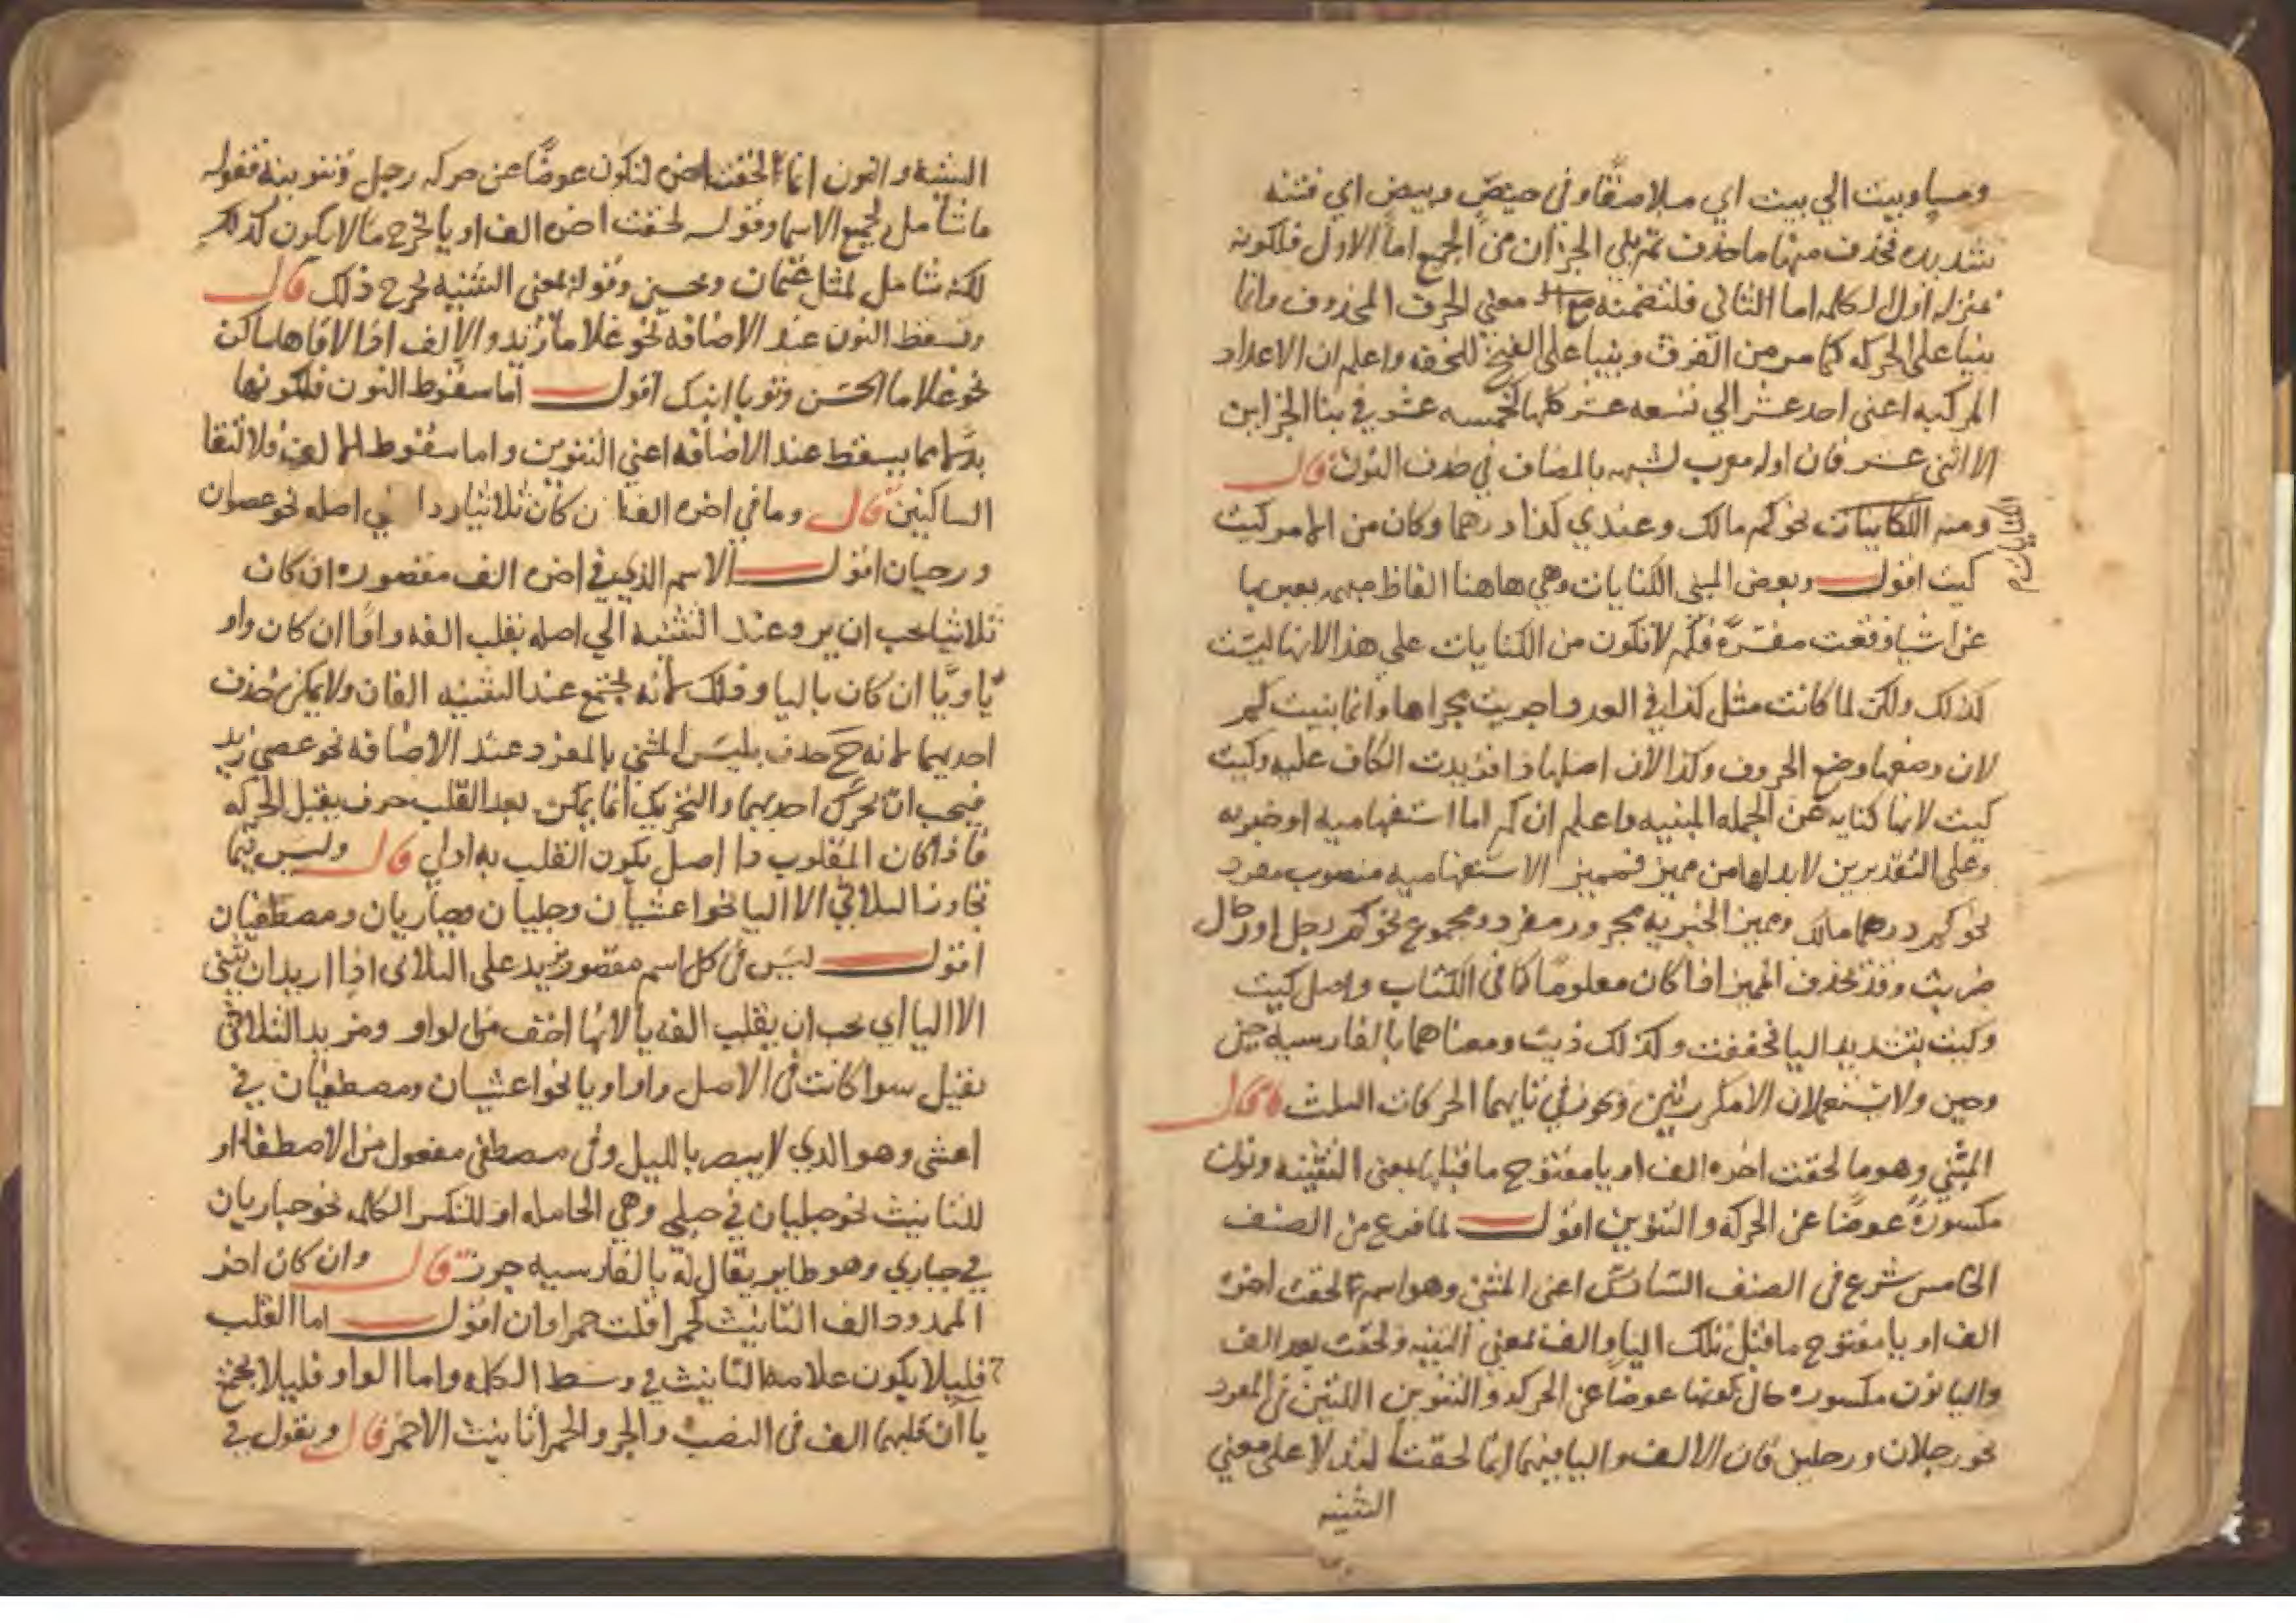 ومساو بيت الي بيت اي ملاصقا وفي حيص وبيص اي فتنه
شديده فحذف منها ما حذف ثم بني الجزان من الجميع اما الاول فلكونه
بمنزله اول الكلمه اما الثاني فلتضمنه معني الحرف المحذوف وانما
بنيا على الحركه كما مر من الفرق وبنيا على الفتح للخفه واعلم ان الاعداد
المركبه اعنى احد عشر الي تسعه عشر كلها كخمسه عشر في بنا الجزاين
الا اثنى عشر فان اوله معرب لشبهه بالمضاف في حذف النون قال
ومنه الكنايات نحو كم مالك وعندي كذا درهما وكان من الامر كيت
الكنايات
كيت اقول وبعض المبنى الكنايات وهي هاهنا الفاظ مبهمه يعبر بها
عن اشيا وقعت مفسره فكم لا تكون من الكنايات على هذا لانها ليست
كذلك ولكن لما كانت مثل كذا في العدد اجريت مجراها وانما بنيت كم
لان وضعها وضع الحروف وكذا لان اصلها ذا فزيدت الكاف عليه وكيت
كيت لانها كنايه عن الجمله المبنيه واعلم ان كم اما استفهاميه او خبريه
وعلى التقديرين لابد لها من مميز فمميز الاستفهاميه منصوب مفرد
نحو كم درهما مالك ومميز الخبريه مجرور مفرد ومجموع نحو كم رجل او رجال
ضربت وقد يحذف المميز اذا كان معلوما كما في الكتاب واصل كيت
وكيت بتشديد اليا فخففت وكذلك ذيت ومعناهما بالفارسيه چنين
وچين ولا يستعملان الا مكررتين ويجوز في تايهما الحركات الثلث قال
المثني وهو ما لحقت اخره الف او يا مفتوح ما قبلها لمعنى التثنيه ونون
مكسورة عوضًا عن الحركه والتنوين اقول لما فرغ من الصنف
الخامس شرع في الصنف السادس اعنى المثنى وهو اسم لحقت اخره
الف او يا مفتوح ما قبل تلك اليا والف لمعنى التثنيه ولحقت بعد الف
واليا نون مكسوره حال كونها عوضا عن الحركه والتنوين اللتين في المفرد
نحو رجلان ورجلين فان الالف واليا فيهما انما لحقتا لتدلا على معني
التثنيه
التثنيه والنون انما الحقت اخره لتكون عوضًا عن حركه رجل وتنوينه فقوله
ما شامل لجميع الاسما وقوله لحقت اخره الف او يا يخرج ما لا يكون كذلك
لكنه شامل لمثل عثمان ومحسن وقوله لمعنى التثنيه يخرج ذلك قال
وتسقط النون عند الاضافه نحو غلاما زيد والالف اذا لاقاها ساكن
نحو غلاما الحسن وثوبا ابنك اقول اما سقوط النون فلكونها
بدلا مما يسقط عند الاضافه اعني التنوين واما سقوط الالف فلالتقا
الساكنين قال وما في اخره الف ان كان ثلاثيا رد الي اصله نحو عصوان
ورحيان اقول الاسم الذي في اخره الف مقصوره ان كان
ثلاثيا يجب ان يرد عند التثنيه الي اصله بقلب الفه واوًا ان كان واو
يًا ويًا ان كان باليا وذلك لانه يجتمع عند التثنيه الفان ولا يمكن حذف
احديهما لانه ح حذف يلبس المثني بالمفرد عند الاضافه نحو عصي زيد
فيجب ان تحرك احديهما والتحريك انما يمكن بعد القلب حرف يقبل الحركه
فاذا كان المقلوب ذا اصل يكون القلب به اولي قال وليس فيما
تجاوز الثلاثي الا اليا نحو اعشيان وحبليان وحباريان ومصطفيان
اقول ليس في كل اسم مقصور يزيد على الثلاثي اذا اريد ان يثنى
الا اليا اي يجب ان يقلب الفه يا لانها اخف من الواو ومزيد الثلاثي
ثقيل سوا كانت في الاصل واوا او يا نحو اعشيان ومصطفيان في
اعشى وهو الذي لا يبصر بالليل وفي مصطفى مفعول من الاصطفا او
للتانيث نحو حبليان في حبلي وهي الحامله او لتكسر الكلمه نحو حباريان
في حباري وهو طاير يقال له بالفارسيه چرز قال وان كان اخر
الممدود الف التانيث كحمرا قلت حمراوان اقول اما القلب
فليلا يكون علامه التانيث في وسط الكلمه واما الواو فليلا يجتمع
يا ان قلبهما الف في النصب والجر والحمرا تانيث الاحمر قال وتقول في